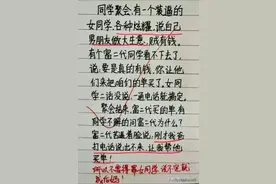 同学聚会,有一个装逼的
女同学,各种炫耀,说自己
男朋友做大生意,贼有钱。
有个富二代同学看不下去了,
说:要是真的有钱,你让他
们来把咱们的单买了。女同
学二话没说,一通电话就搞定。
聚会结束,富二代买的单,有
同学不解的问富二代为什么?
富二代苦逼着脸说,刚才我爸
打电话说出不来,让我帮他
买单!
所以不要得罪女同学,说不定就